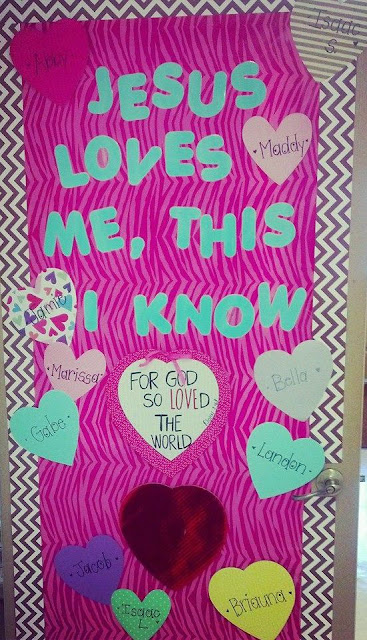 Isaac
S.
Abby
JESUS
LOVES
Maddy
ME, THIS
I KNOW
Jamie
Marissa
FOR GOD
SO LOVED
THE
WORLD
Bella
Gabe
Landon
Jacob
Isaac
L
Briauna